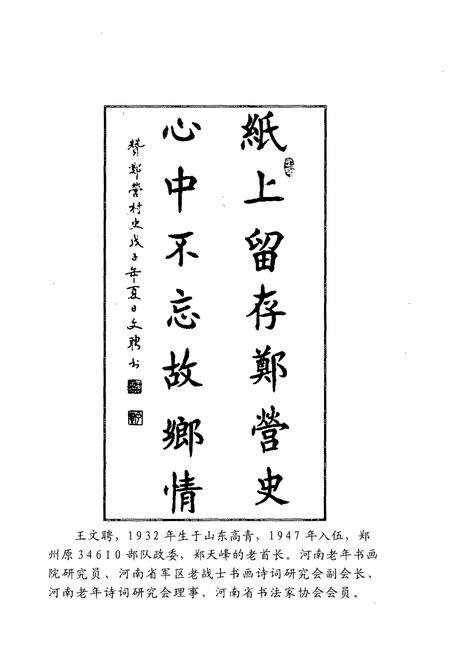 紙上留存鄭營史
心中不忘故鄉情
贊鄭營村史戊子年夏日文聘书
王文聘，1932年生于山东高青，1947年入伍，郑
州原34610部队政委，郑天峰的老首长。河南老年书画
院研究员、河南省军区老战士书画诗词研究会副会长、
河南老年诗词研究会理事、河南省书法家协会会员。